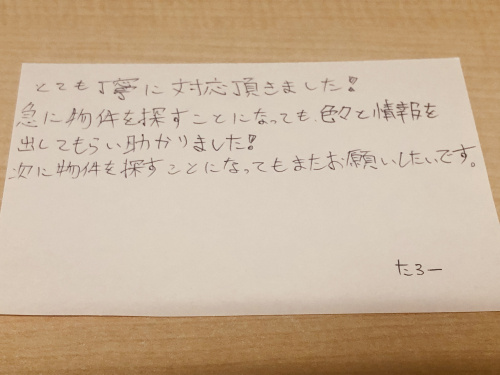 とても丁寧に対応頂きました!
急に物件を探すことになっても、色々と情報を
出してもらい助かりました!
次に物件を探すことになってもまたお願いしたいです。
たろー